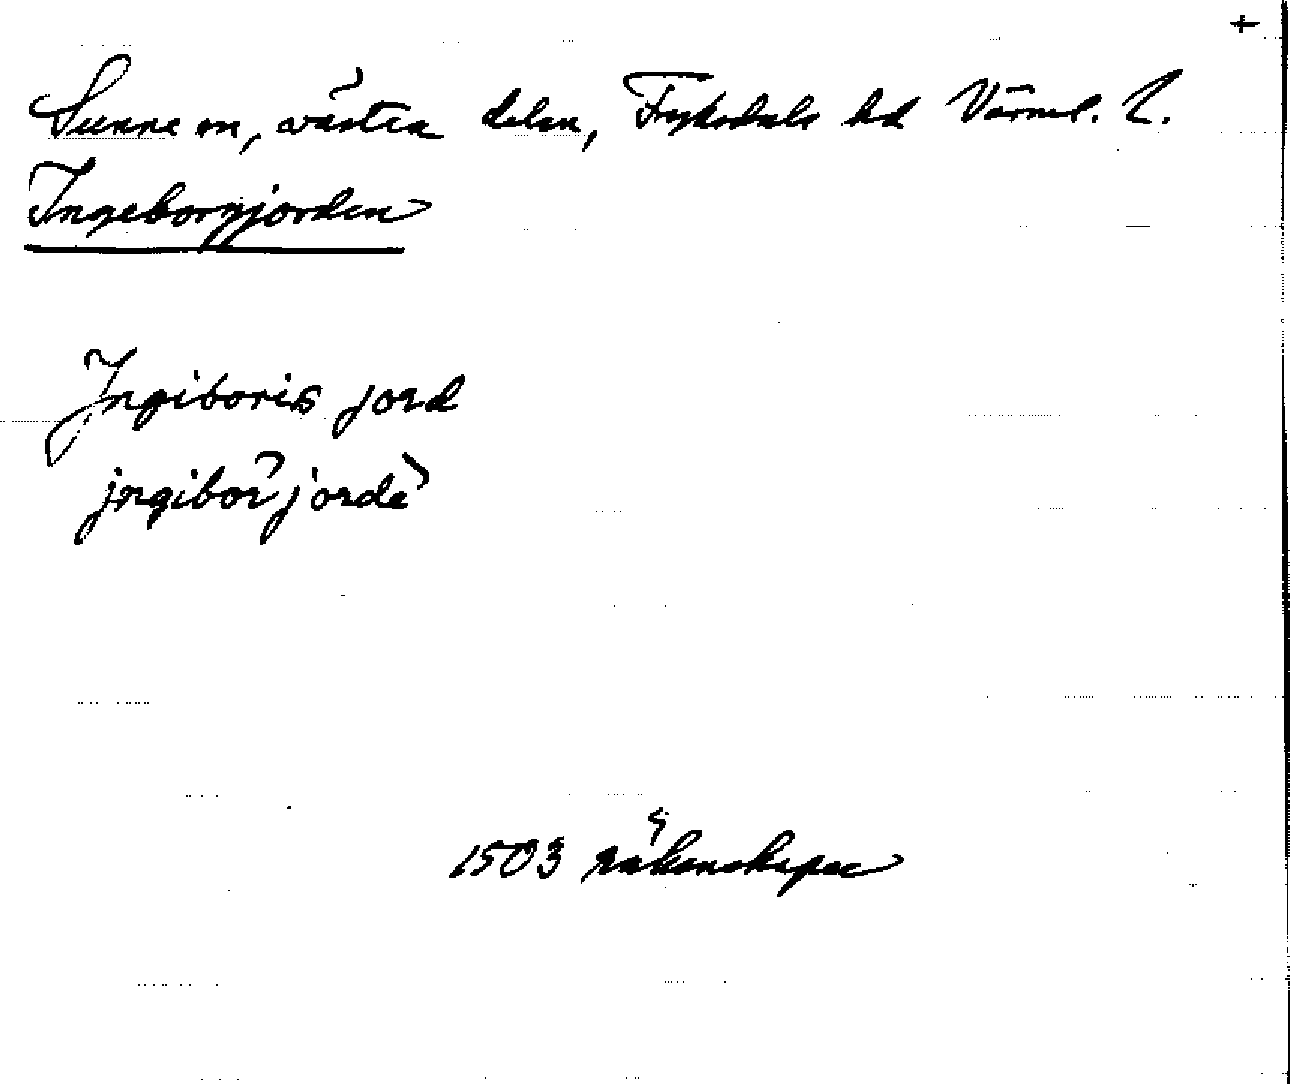 +
Sunne sn, västra delen, Fryksdals hd Värml. l.
Ingeborgjorden
Jngiboris jord
jngibor jorde
1503 räkenskaper